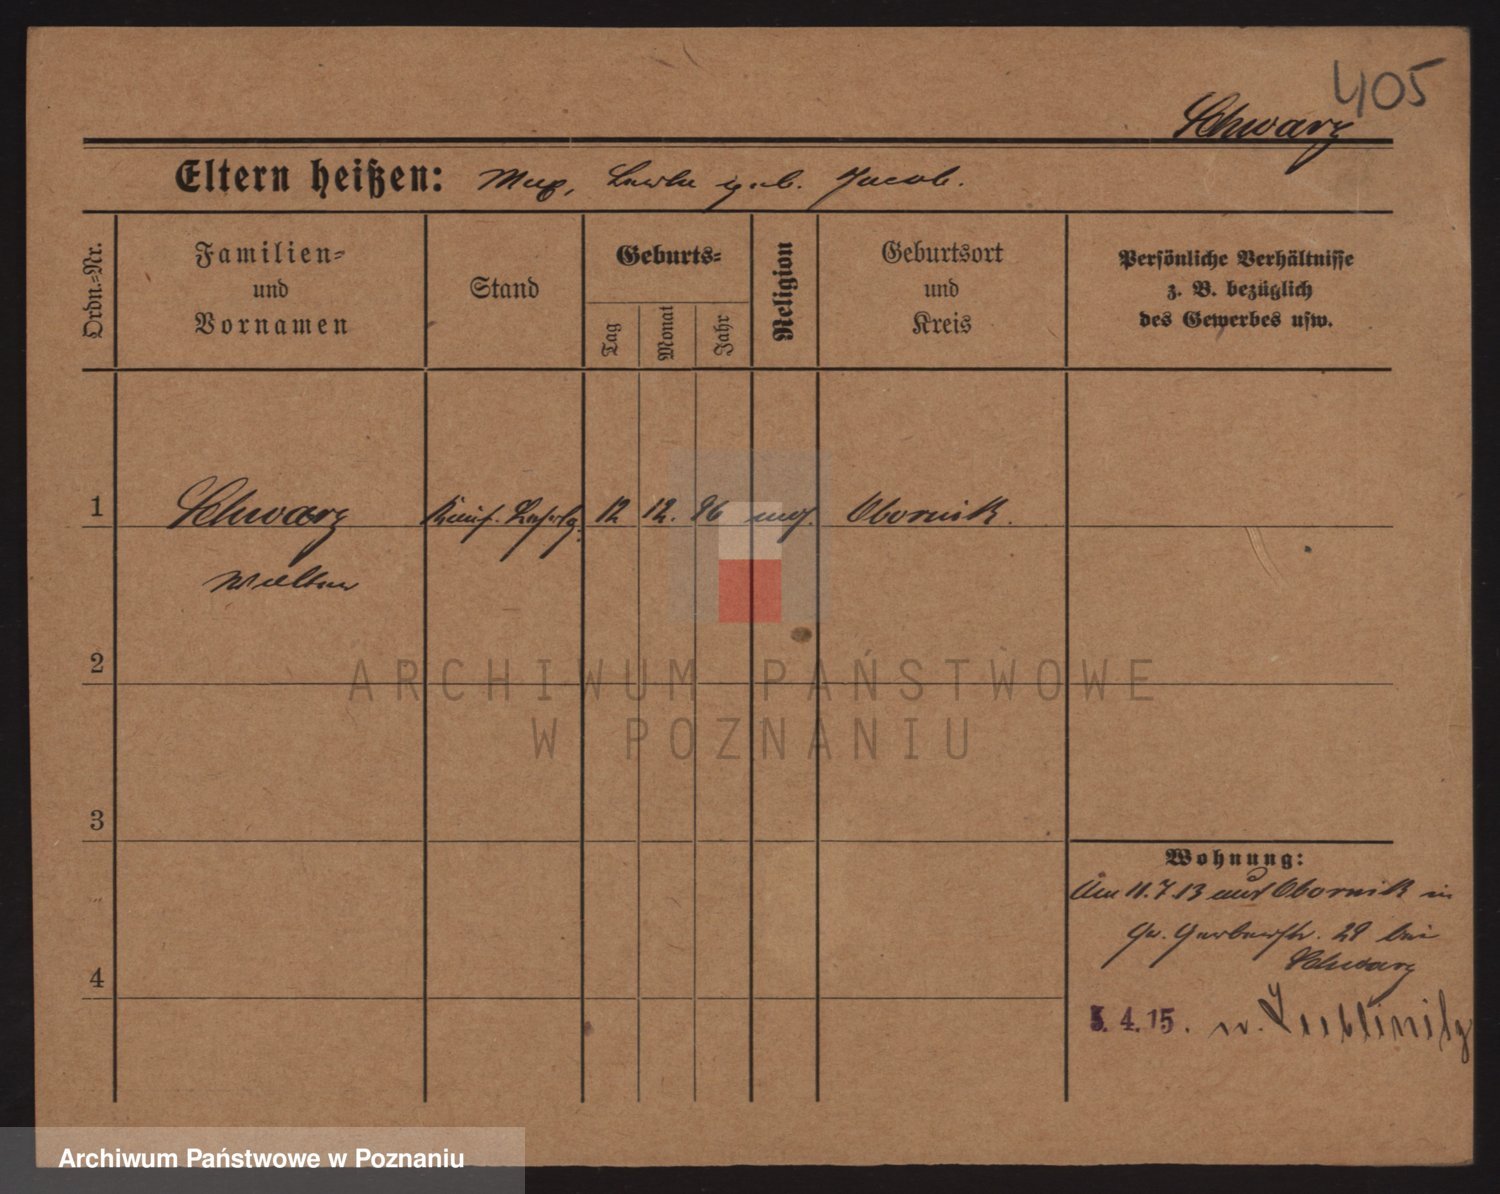 405
Schwarz
Eltern heißen: Max, geb. Jacob.
Ordn.-Nr.
Familien-
und
Vornamen
Stand
Geburts-
Tag
Monat
Jahr
Religion
Geburtsort
und
Kreis
Persönliche Verhältnisse
z. B. bezüglich
des Gewerbes usw.
1 Schwarz Kauf. Lehrlg. 12 12. 96 mos. Obornik.
Walter
2
ARCHIWUM PAŃSTWOWE
W POZNANIU
3
Wohnung:
Am 11.7.13 aus Obornik in
Gr. Gerberstr. 29 bei
Schwarz
4
5. 4. 15. n. Lublinitz
Archiwum Państwowe w Poznaniu